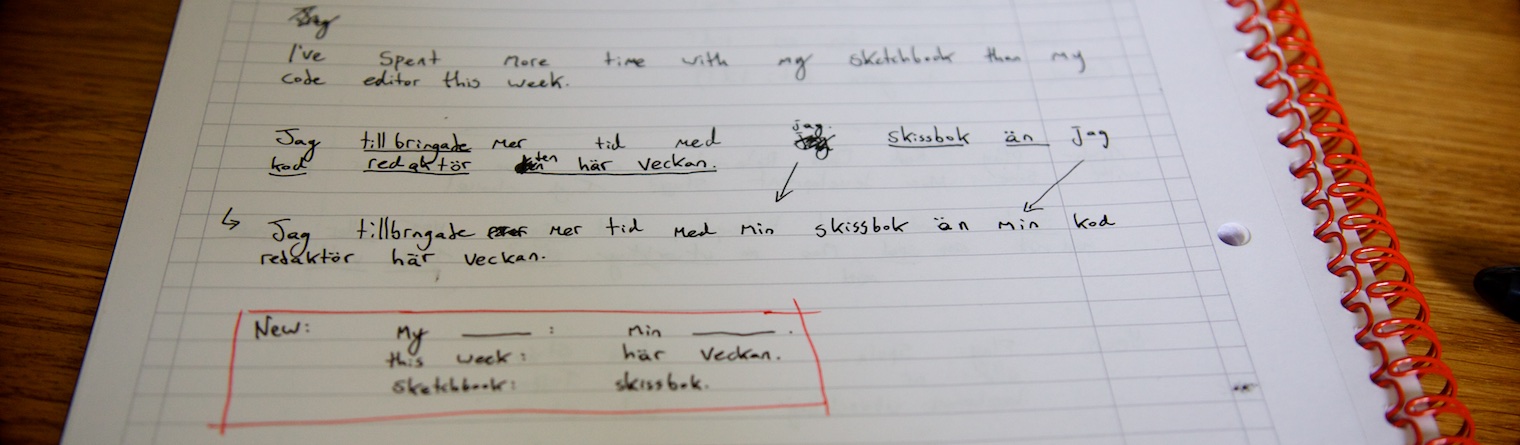 I've spent more time with my sketchbook than my
code editor this week.
jag.
Jag tillbringade mer tid med skissbok än jag
kod redaktör ten här veckan.
↳ Jag tillbrngade mer tid med min skissbok än min kod
redaktör här veckan.
New: My ____ : min ____ .
this week: här veckan.
sketchbook: skissbok.